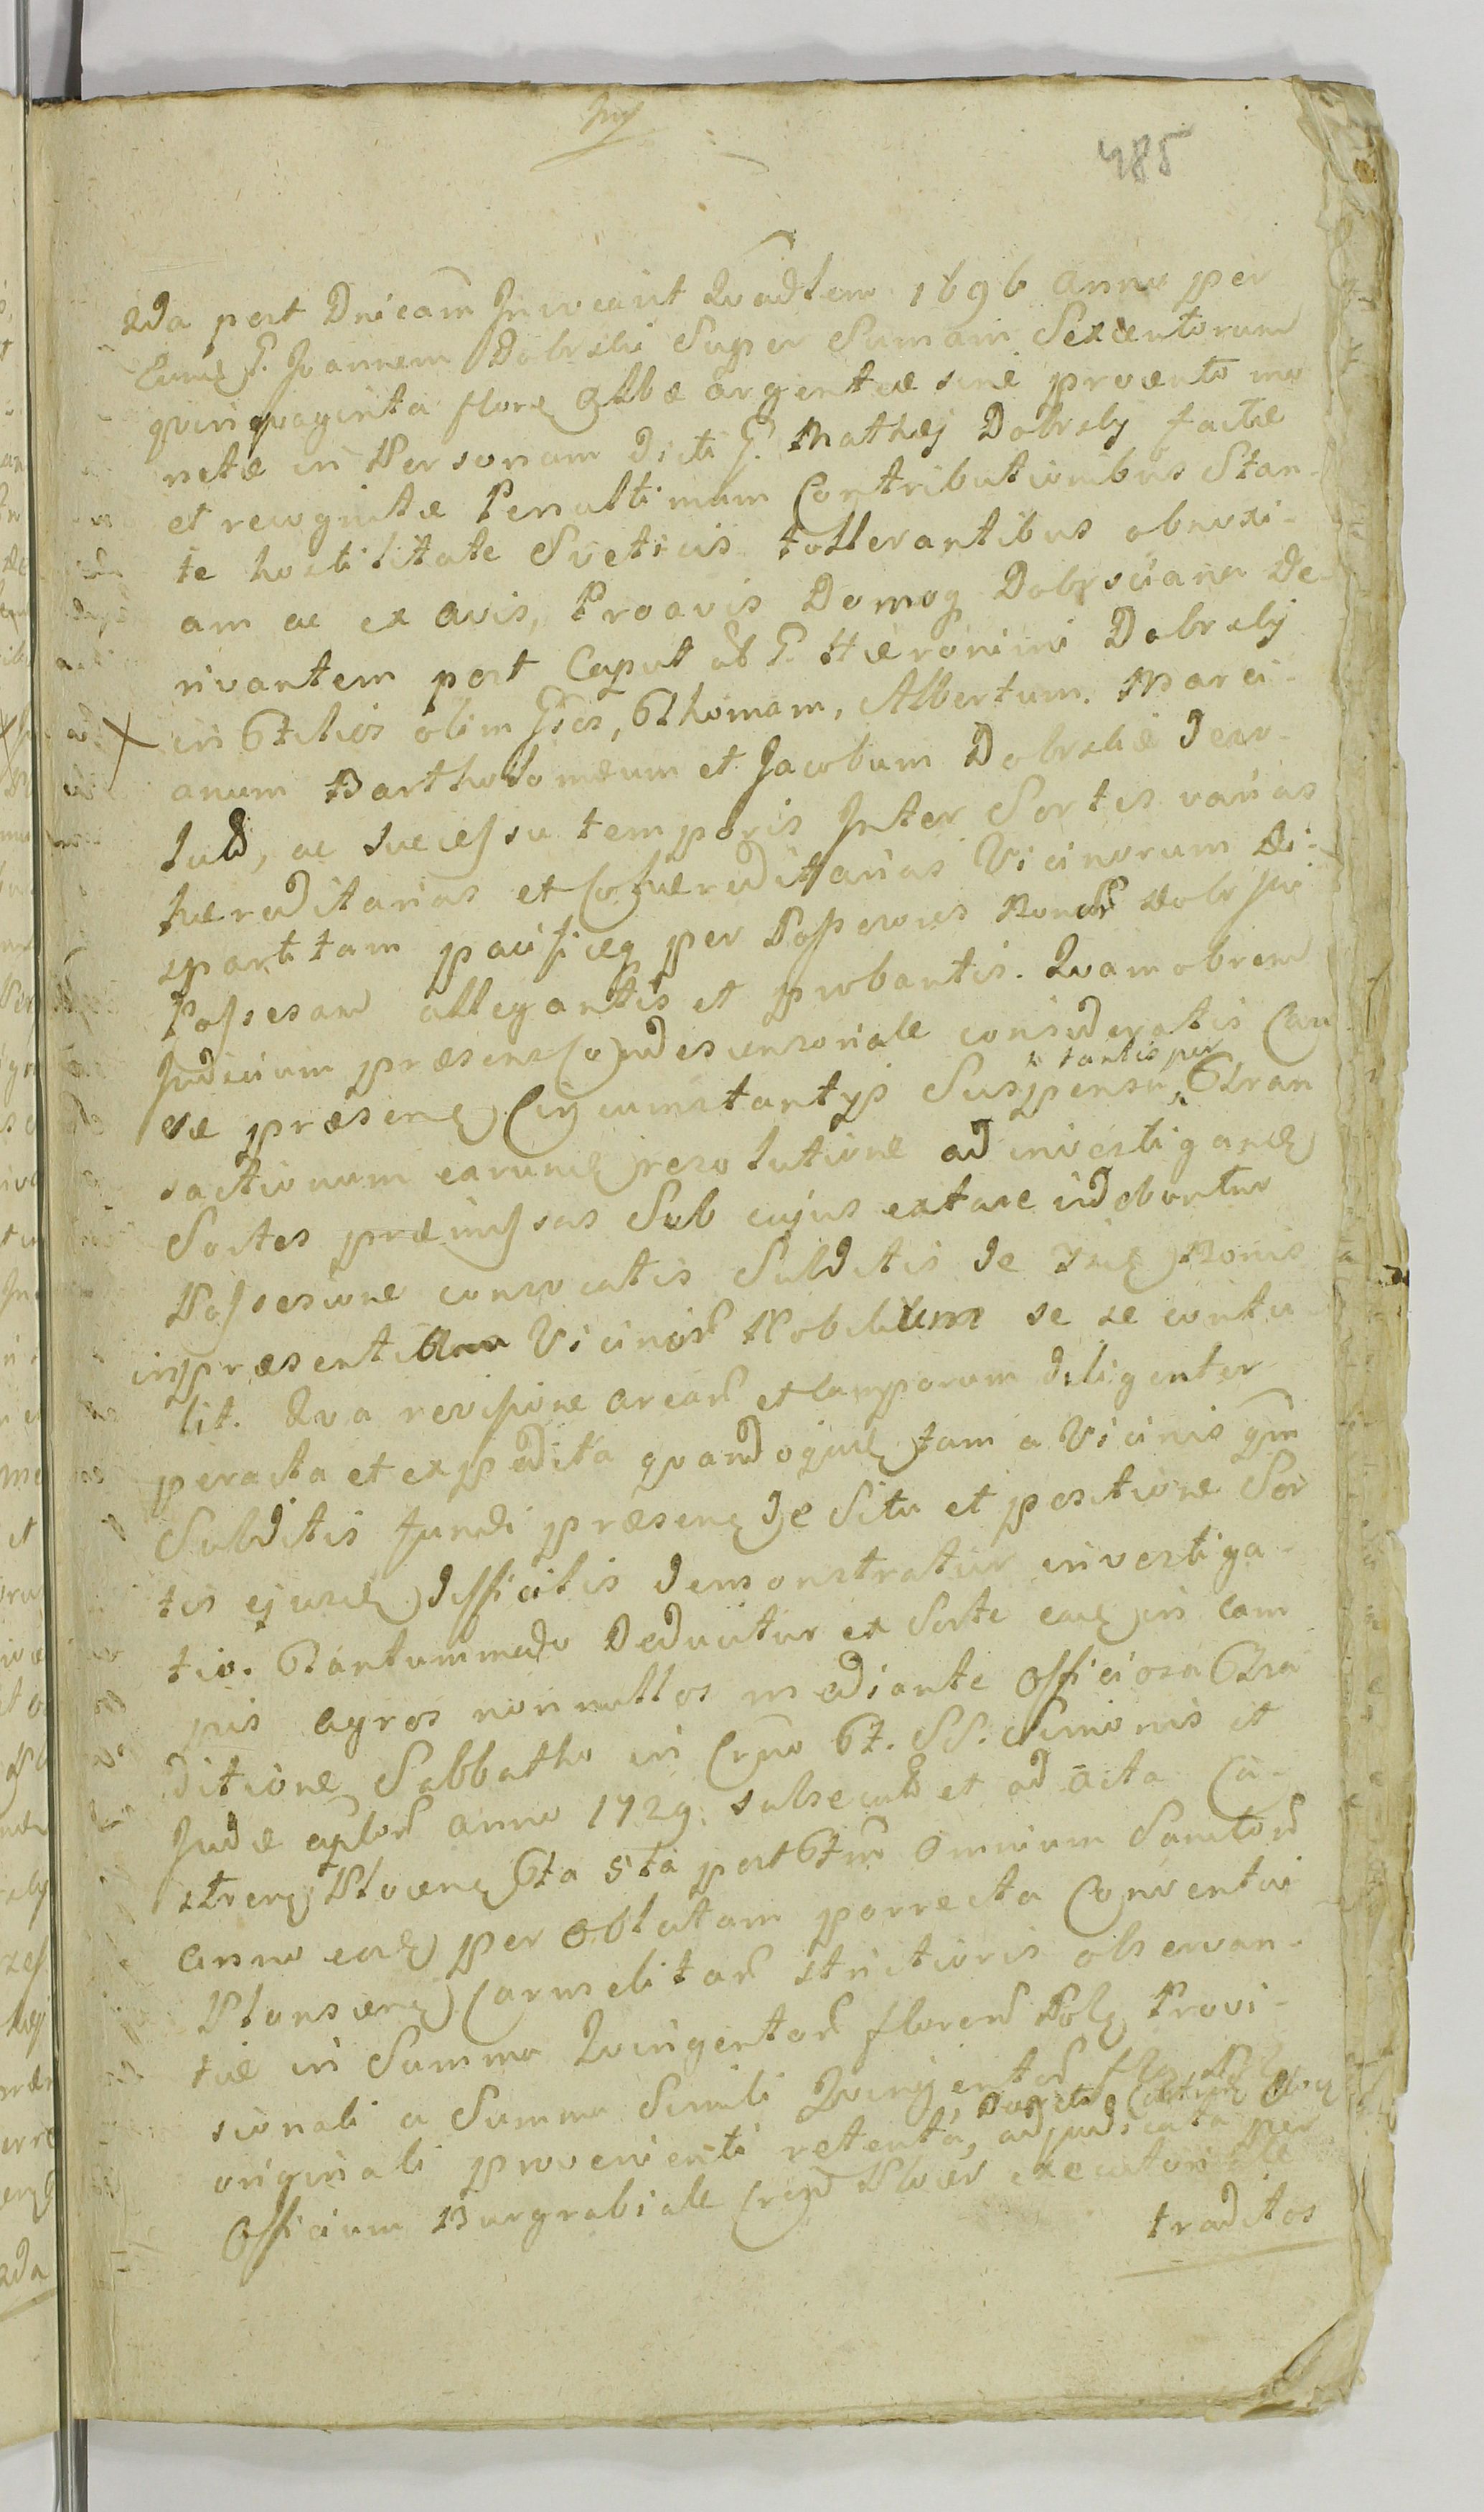 485
2da post Dnicam Invocavit Quadlem 1696 anno per
Eund G. Joannem Dobrski Super Sumam Sexcentorum
quinquaginta floren Albæ argenteæ sine provento mo
netæ in Personam dicti G. Mathæj Dobrskij factæ
et recognitæ Penultimum Contributionibus Stan-
te hostilitate Sveticis tollerantibus obnoxi-
am ac ex avis, Proavis Domoq Dobrsciana de-
rivantem post Caput ol G. Hieronimi Dobrskij
in Filios olim Gsos, Thomam, Albertum, Marci-
anum Bartholomæum et Jacobum Dobrskie devo-
lutã, ac sucessu temporis Inter Sortes varias
hæreditarias et Cohæreditarias Vicinorum di-
spartitam pacificeq per Possesores Bonor Dobrski
Possesam allegantis et probantis. Quamobrem
Judicium præsens Condescensoriale consideratis Cau
sæ præsen Circumstantijs Suspensa tantisper Tran
sactionum earund resolutione ad investigand
Sortes præmissas Sub cujus extare videbontur
Possesione convocatis Subditis de iisd Bonis
inpræsentia Vicinor Nobilium se se contu
lit. Qua revisione arear et camporum diligenter
peracta et expedita quandoquid tam a Vicinis qm
Subditis fundi præsen de Situ et positione Sor
tis ejusd difficilis demonstratur investiga-
tio. Tantummodo Deducitur ex Sorte ead in cam
pis agros nonnullos mediante Officiosa Tra
ditione Sabbatho in Crno fti. SS. Simonis et
Judæ aplor anno 1729. subsecuta et ad acta Ca-
stren Plocen fta 5ta post ftm Omnium Sanctor
anno eod per Oblatam porrecta Conventui
Plonscen Carmelitar strictioris observan-
tiæ in Summa Quingentor floren Pol Provi-
sionali a Summa Simili Quingentor flor Pol
originali provenienti retenta, adjudicata per
Officium Burgrabiale Cren Plocen executoriale
traditos